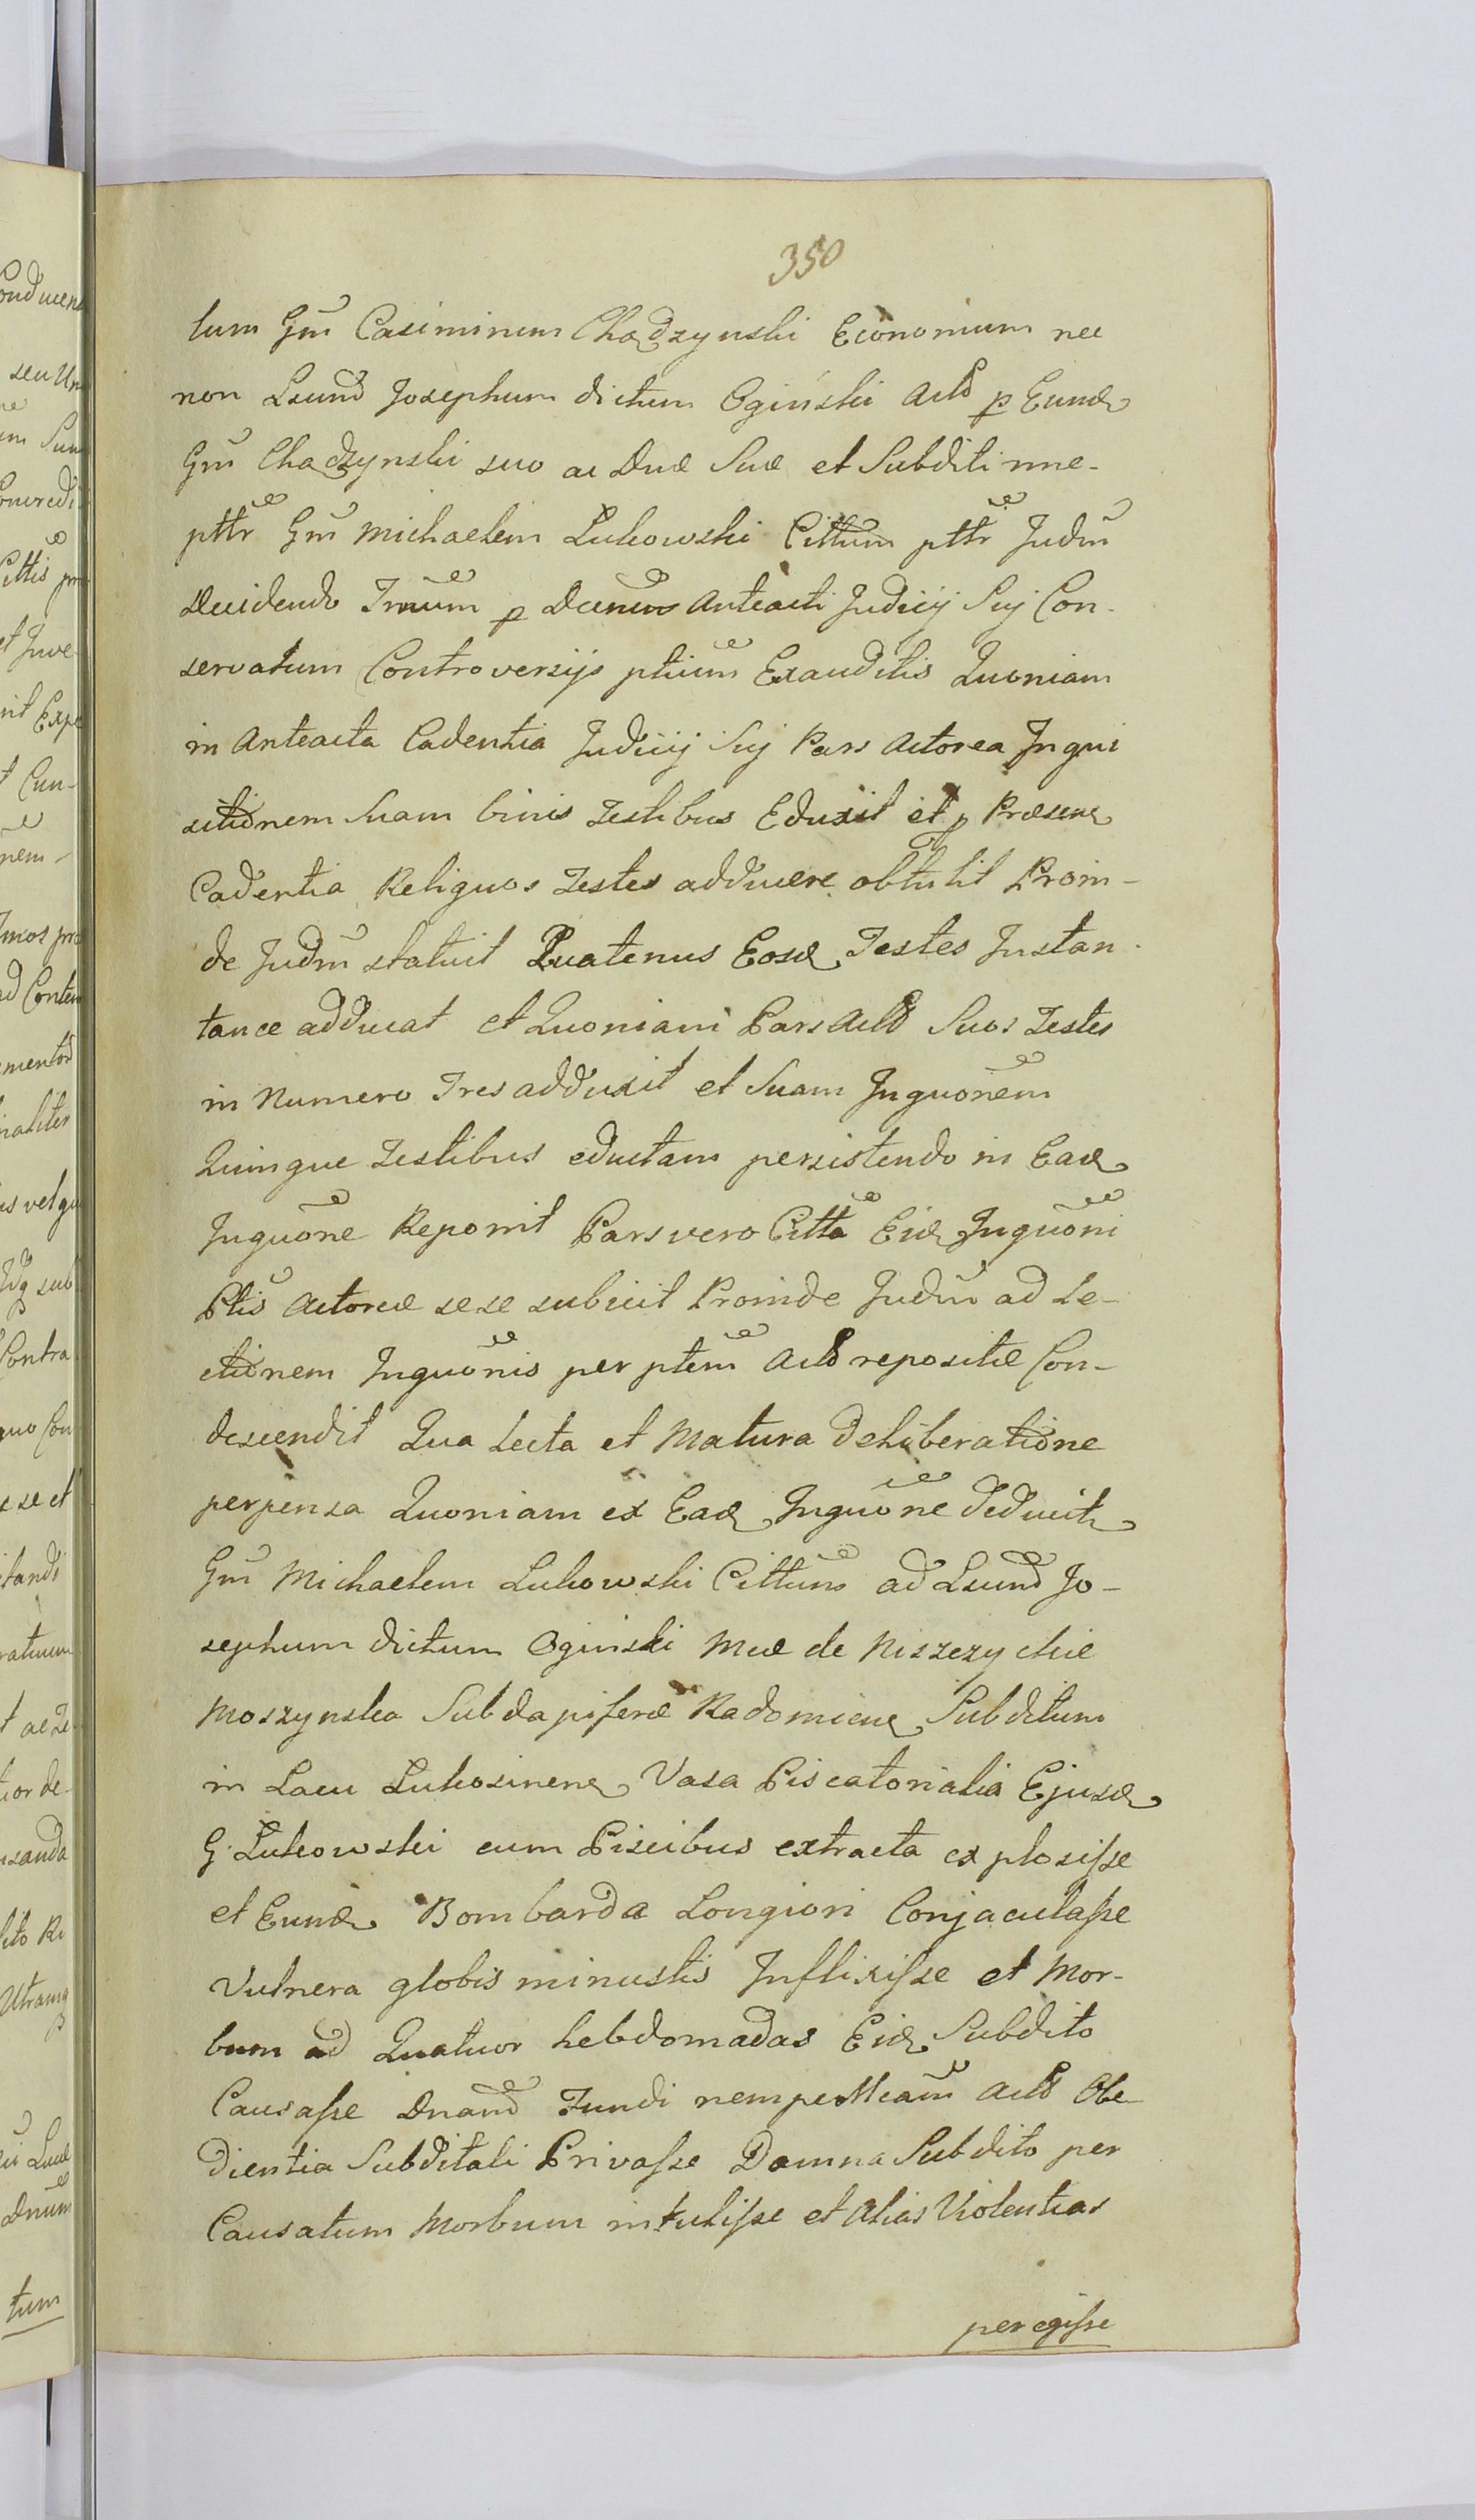 350
tum Gm̃ Casimirum Chądzynski Economum nec
non Lsund Josephum dictum Oginski Actō p Eund
Gm̃ Chądzynski suo ac Dnæ Suæ et Subditi nne-
pttr Gm̃ Michaelem Lukowski Cittum pttr Judm̃
Decidendo Tmum p Decrum Anteacti Judicij Sui Con-
servatum Controversijs ptium Exauditis Quoniam
in Anteacta Cadentia Judicij Sui Pars Actorea Inqui
sitionem Suam binis Testibus Eduxit et p Præsen
Cadentia Reliquos Testes adducere obtulit Proin-
de Judm̃ statuit Quatenus Eosd Testes Instan-
tanee adducat et Quoniam Pars Actō Suos Testes
in Numero Tres adduxit et Suam Inquonem
Quinque Testibus eductam persistendo in Ead
Inquone Reponit Pars vero Citta Eid Inquoni
Ptis Actoreæ sese subicit Proinde Judm̃ ad Le-
ctionem Inquonis per ptem Actō repositæ Con-
descendit Qua Lecta et Matura Deliberatione
perpensa Quoniam ex Ead Inquone deducit
Gm̃ Michaelem Lukowski Cittum ad Lsund Jo-
sephum dictum Oginski Mcæ de Niszczyckie
Moszynska Subdapiferæ Radomien Subditum
in Lacu Lukosinen Vasa Piscatorialia Ejusd
G. Lukowski cum Piscibus extracta explosisse
et Eund Bombarda Longiori Conjaculasse
Vulnera globis minustis Inflixisse et Mor-
bum ad Quatuor hebdomadas Eid Subdito
Causasse Dnam Fundi nempe Mcam Actō Obe-
dientia Subditali Privasse Damna Subdito per
Causatum Morbum intulisse et Alias Violentias
peregisse